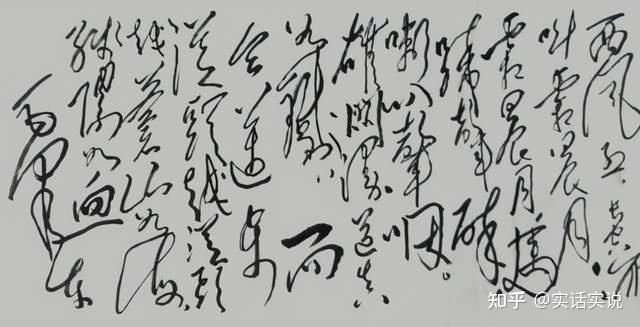 西风烈 长空雁
叫霜晨月
霜晨月 马
蹄声碎
喇叭声咽。
雄关漫道真
如铁 而
今迈步
从头越 从头
越苍山如海
残阳如血
毛泽东
知乎 @实话实说